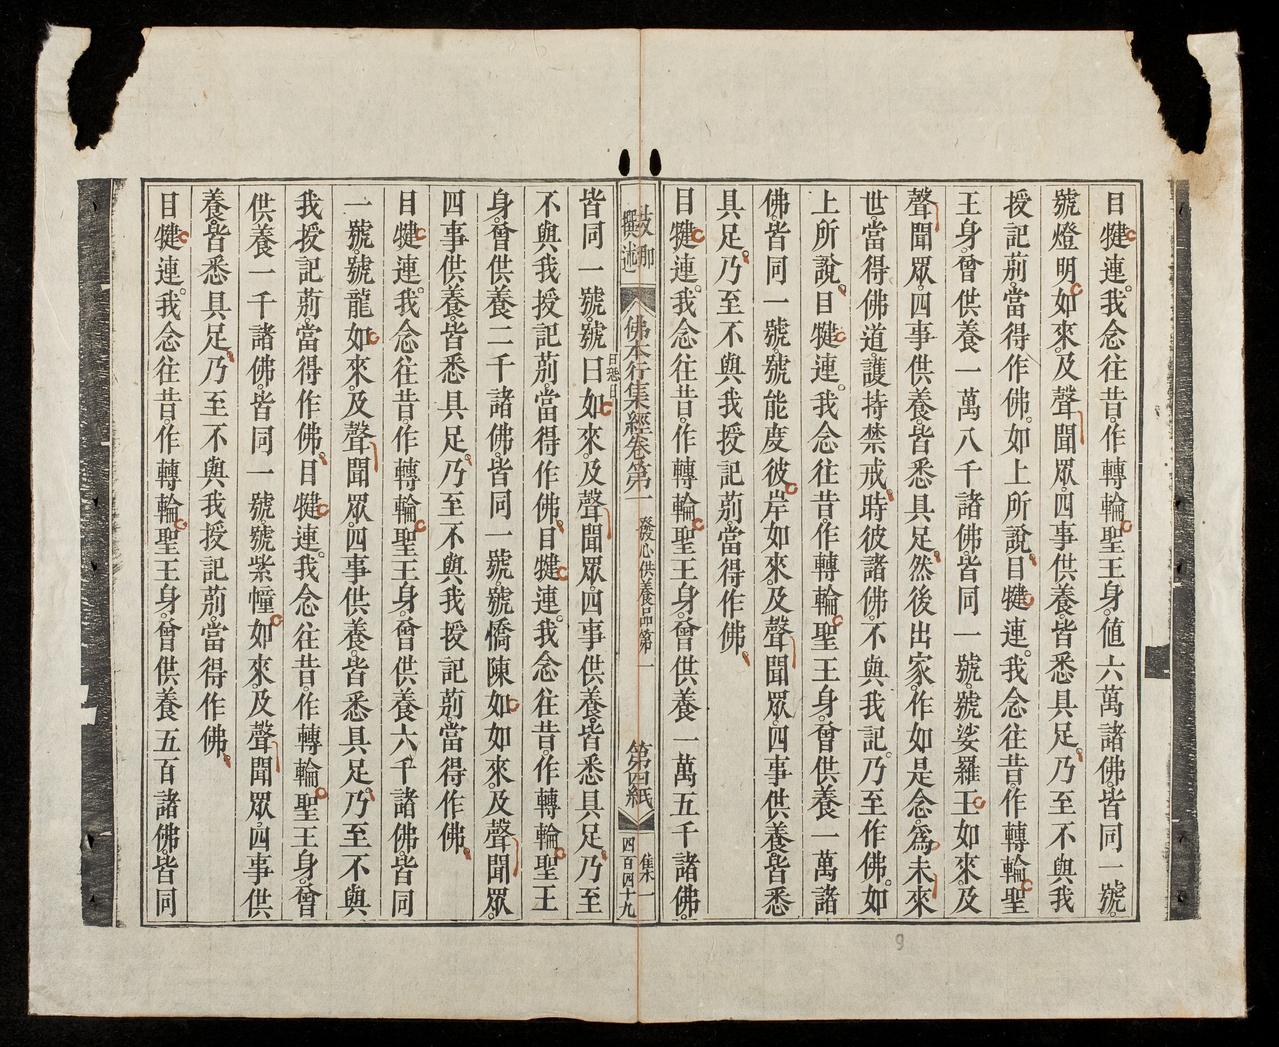 目犍連。我念往昔。作轉輪聖王身。値六萬諸佛。皆同一號。
號燈明如來。及聲聞眾。四事供養。皆悉具足。乃至不與我
授記莂。當得作佛。如上所說。目犍連。我念往昔。作轉輪聖
王身。曾供養一萬八千諸佛。皆同一號。號娑羅王如來。及
聲聞眾。四事供養。皆悉具足。然後出家。作如是念。爲未來
世。當得佛道。護持禁戒。時彼諸佛。不與我記。乃至作佛。如
上所說。目犍連。我念往昔。作轉輪聖王身。曾供養一萬諸
佛。皆同一號。號能度彼岸如來。及聲聞眾。四事供養。皆悉
具足。乃至不與我授記莂。當得作佛。
目犍連。我念往昔。作轉輪聖王身。曾供養一萬五千諸佛。
撰述
佛本行集經卷第一 發心供養品第一 第四紙 集一
四百四十九
皆同一號。號日如來。及聲聞眾。四事供養。皆悉具足。乃至
不與我授記莂。當得作佛。目犍連。我念往昔。作轉輪聖王
身。曾供養二千諸佛。皆同一號。號憍陳如如來。及聲聞眾。
四事供養。皆悉具足。乃至不與我授記莂。當得作佛。
目犍連。我念往昔。作轉輪聖王身。曾供養六千諸佛。皆同
一號。號龍如來。及聲聞眾。四事供養。皆悉具足。乃至不與
我授記莂。當得作佛。目犍連。我念往昔。作轉輪聖王身。曾
供養一千諸佛。皆同一號。號紫幢如來。及聲聞眾。四事供
養。皆悉具足。乃至不與我授記莂。當得作佛。
目犍連。我念往昔。作轉輪聖王身。曾供養五百諸佛。皆同